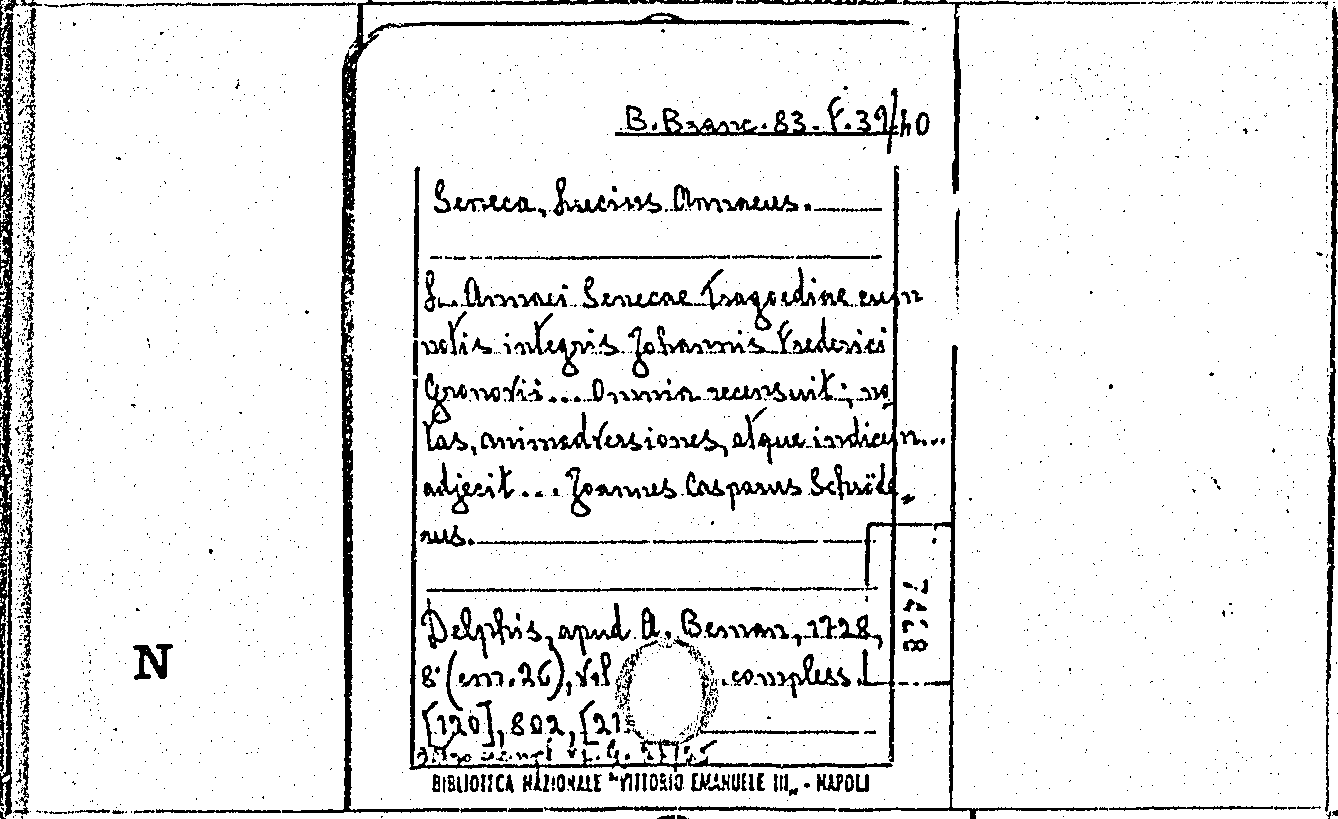 B. Branc. 83. F. 39/40
Seneca, Lucius Annaeus.
L. Annaei Senecae Tragoediae cum
notis integris Johannis Frederici
Gronovii... Omnia recensuit; no
tas, animadversiones, atque indicem...
adjecit... Joannes Casparus Schröde„
rus.
7428
Delphis, apud A. Beman, 1728,
8° (cm. 26), vol compless.
[120], 802, [21
N
BIBLIOTECA NAZIONALE "VITTORIO EMANUELE III„ - NAPOLI